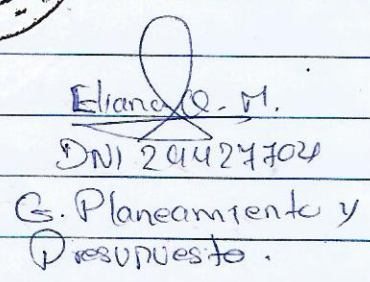 Eliana Q. M.
DNI 29427704
G. Planeamiento y
Presupuesto.